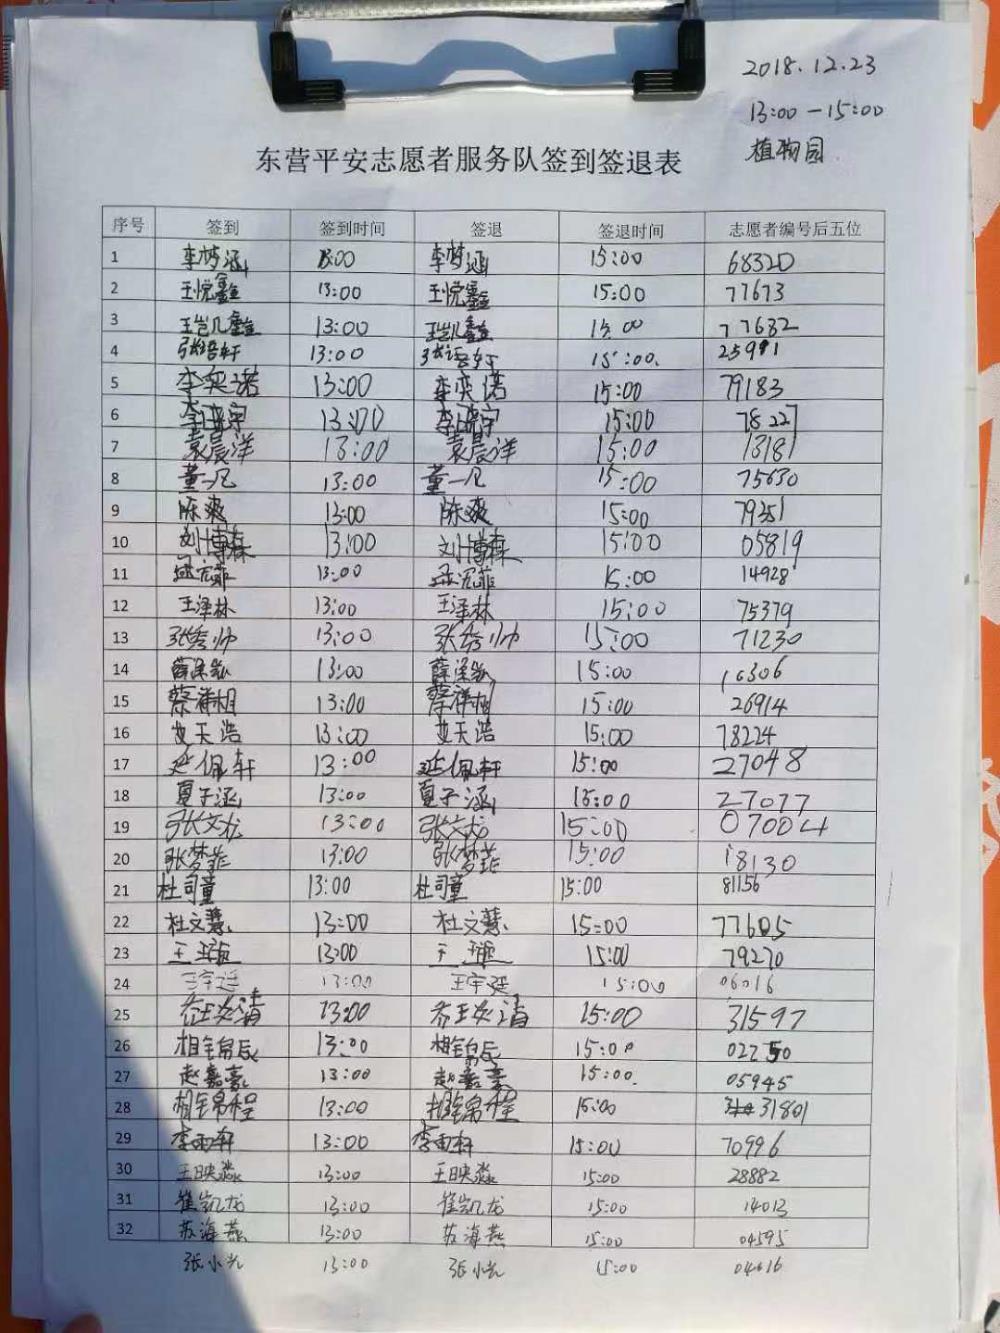 2018.12.23
13:00-15:00
植物园
东营平安志愿者服务队签到签退表
序号 签到 签到时间 签退 签退时间 志愿者编号后五位
1 李梦涵 13:00 李梦涵 15:00 68320
2 王悦鑫 13:00 王悦鑫 15:00 77673
3 王凯鑫 13:00 王凯鑫 15:00 77632
4 张培轩 13:00 15:00. 25991
5 李奕诺 13:00 李奕诺 15:00 79183
6 13:00 15:00 78227
7 袁晨洋 13:00 袁晨洋 15:00 13181
8 董一凡 13:00 董一凡 15:00 75630
9 陈爽 13:00 陈爽 15:00 79351
10 刘博森 13:00 刘博森 15:00 05819
11 13:00 15:00 14928
12 王泽林 13:00 王泽林 15:00 75379
13 张秀帅 13:00 张秀帅 15:00 71230
14 13:00 15:00 16306
15 蔡祥相 13:00 蔡祥相 15:00 26914
16 艾天浩 13:00 艾天浩 15:00 78224
17 延佩轩 13:00 延佩轩 15:00 27048
18 夏子涵 13:00 夏子涵 15:00 27077
19 张文龙 13:00 张文龙 15:00 07004
20 张梦菲 13:00 张梦菲 15:00 18130
21 杜司童 13:00 杜司童 15:00 81156
22 杜文慧 13:00 杜文慧 15:00 77605
23 13:00 15:00 79270
24 王宇延 13:00 王宇延 15:00 06016
25 13:00 15:00 31597
26 相锦辰 13:00 相锦辰 15:00 02250
27 赵嘉豪 13:00 赵嘉豪 15:00. 05945
28 相锦程 13:00 相锦程 15:00 31801
29 李雨轩 13:00 李雨轩 15:00 70996
30 王映淼 13:00 王映淼 15:00 28882
31 崔凯龙 13:00 崔凯龙 15:00 14013
32 苏海燕 13:00 苏海燕 15:00 04595
张小光 13:00 张小光 15:00 04616